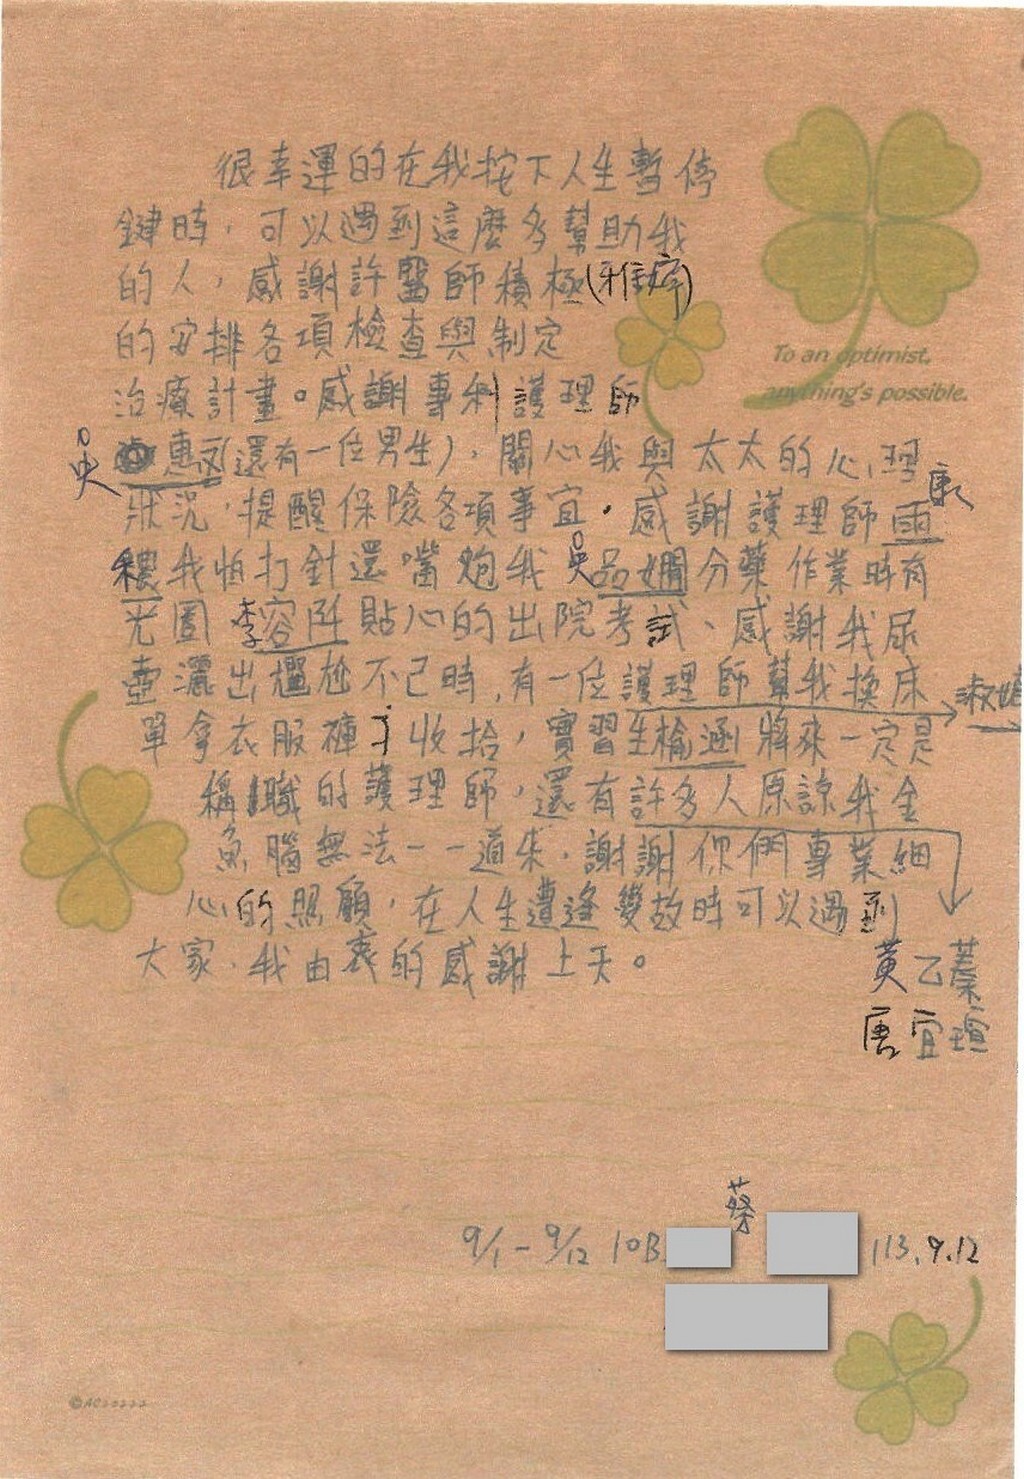 很幸運的在我按下人生暫停
鍵時，可以遇到這麼多幫助我
的人，感謝許醫師積極(雅婷)
的安排各項檢查與制定
治療計畫。感謝專科護理師
吳惠(還有一位男生)，關心我與太太的心理
狀況，提醒保險各項事宜。感謝護理師康雨
穠我怕打針還嘴炮我 吳品嫺分藥作業時有
光圈 李容阡貼心的出院考試、感謝我尿
壺灑出尷尬不已時，有一位護理師幫我換床
淑
單拿衣服褲子收拾，實習生榆涵將來一定是
稱職的護理師，還有許多人原諒我金
魚腦無法一一道來，謝謝你們專業細
心的照顧，在人生遭逢變故時可以遇到
大家，我由衷的感謝上天。
黃乙蓁
唐宜瑄
蔡
9/1－9/12 10B 113.9.12
To an optimist,
anything's possible.
©AC20222